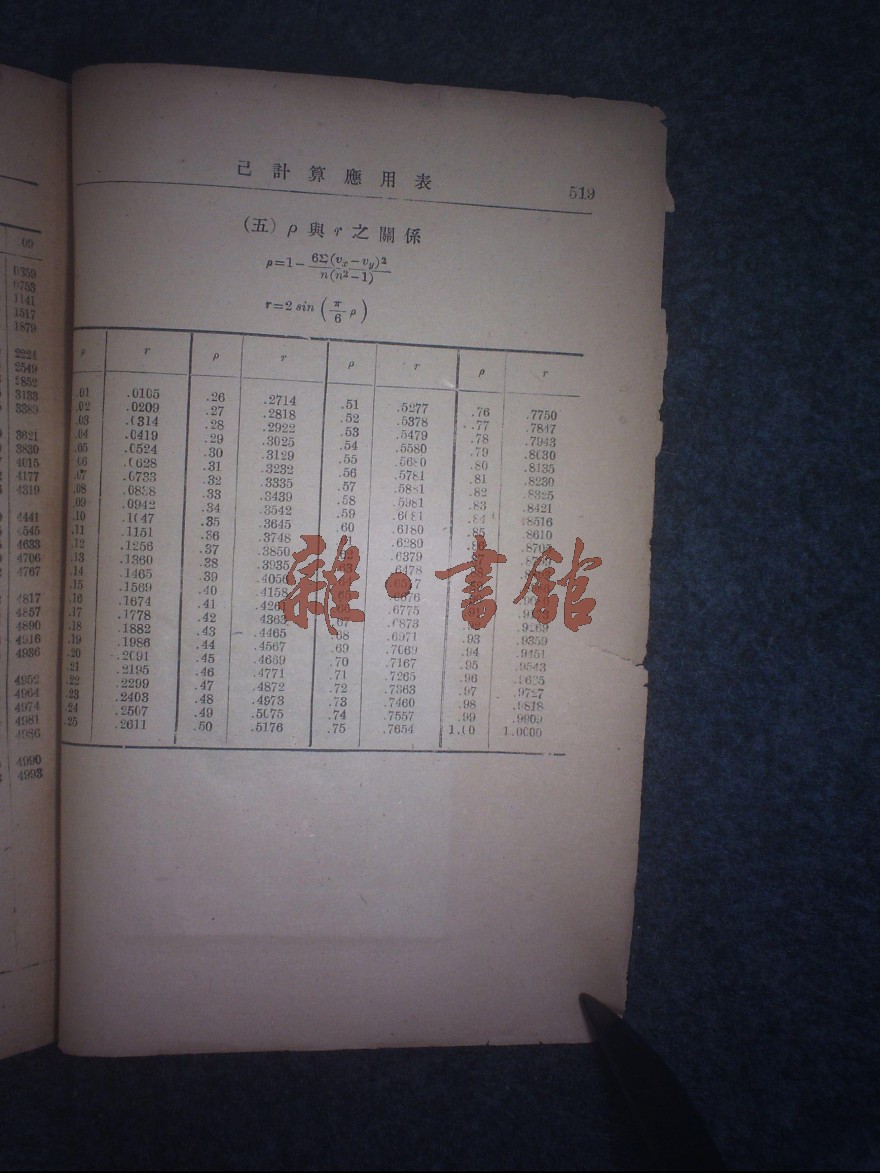 己計算應用表
519
(五) ρ 與 r 之關係
ρ=1-6Σ(vx-vy)²/n(n²-1)
r=2 sin (π/6 ρ)
ρ r ρ r ρ r ρ r
.01 .0105 .26 .2714 .51 .5277 .76 .7750
.02 .0209 .27 .2818 .52 .5378 .77 .7847
.03 .0314 .28 .2922 .53 .5479 .78 .7943
.04 .0419 .29 .3025 .54 .5580 .79 .8030
.05 .0524 .30 .3129 .55 .5680 .80 .8135
.06 .0628 .31 .3232 .56 .5781 .81 .8230
.07 .0733 .32 .3335 .57 .5881 .82 .8325
.08 .0838 .33 .3439 .58 .5981 .83 .8421
.09 .0942 .34 .3542 .59 .6081 .84 .8516
.10 .1047 .35 .3645 .60 .6180 .85 .8610
.11 .1151 .36 .3748 .6280
.12 .1256 .37 .3850 .6379
.13 .1360 .38 .3935 .6478
.14 .1465 .39
.15 .1569 .40 .4158
.16 .1674 .41 .6775
.17 .1778 .42 .4363 .6873
.18 .1882 .43 .4465 .68 .6971 .93 .9359
.19 .1986 .44 .4567 .69 .7069 .94 .9451
.20 .2091 .45 .4669 .70 .7167 .95 .9543
.21 .2195 .46 .4771 .71 .7265 .96 .9635
.22 .2299 .47 .4872 .72 .7363 .97 .9727
.23 .2403 .48 .4973 .73 .7460 .98 .9818
.24 .2507 .49 .5075 .74 .7557 .99 .9909
.25 .2611 .50 .5176 .75 .7654 1.00 1.0000
.09
0359
0753
1141
1517
1879
2224
2549
2852
3133
3389
3621
3830
4015
4177
4319
4441
4545
4633
4706
4767
4817
4857
4890
4916
4936
4952
4964
4974
4981
4986
4990
4993
雜·書館